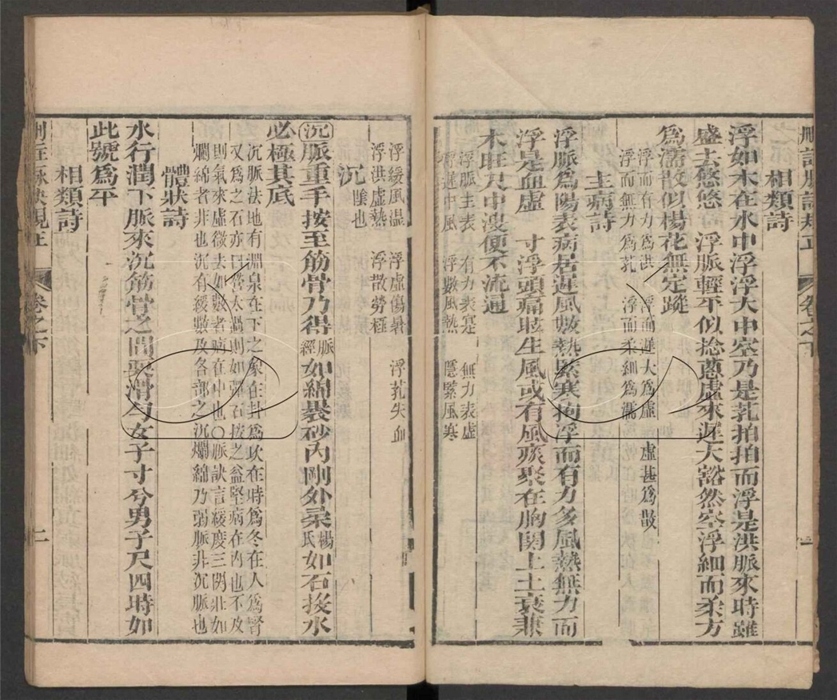 刪註脉訣規正
卷之下
一
相類詩
浮如木在水中浮浮大中空乃是芤拍拍而浮是洪脈來時雖
盛去悠悠 浮脈輕平似捻蔥虛來遲大豁然空浮細而柔方
為濡散似楊花無定蹤
浮而有力為洪 浮而遲大為虛 虛甚為散
浮而無力為芤 浮而柔細為濡
主病詩
浮脈為陽表病居遲風數熱緊寒拘浮而有力多風熱無力而
浮是血虛 寸浮頭痛眩生風或有風痰聚在胸關上土衰兼
木旺尺中溲便不流通
浮脈主表 有力表寔 無力表虛
浮遲中風 浮數風熱 浮緊風寒
浮緩風溫 浮虛傷暑 浮芤失血
浮洪虛熱 浮散勞極
沉 陰也
沉脈重手按至筋骨乃得脈經如綿裹砂內剛外柔楊氏如石投水
必極其底
沉脈法地有淵泉在下之象在卦為坎在時為冬在人為腎
又為之石亦曰營太過則如彈石按之益堅病在內也不及
則氣來虛微去如數者病在中也〇脈訣言緩度三關狀如
爛綿者非也沉有緩數及各部之沉爛綿乃弱脈非沉脈也
體狀詩
水行潤下脈來沉筋骨之間耎滑勻女子寸兮男子尺四時如
此號為平
相類詩
刪註脉訣規正
卷之下
二